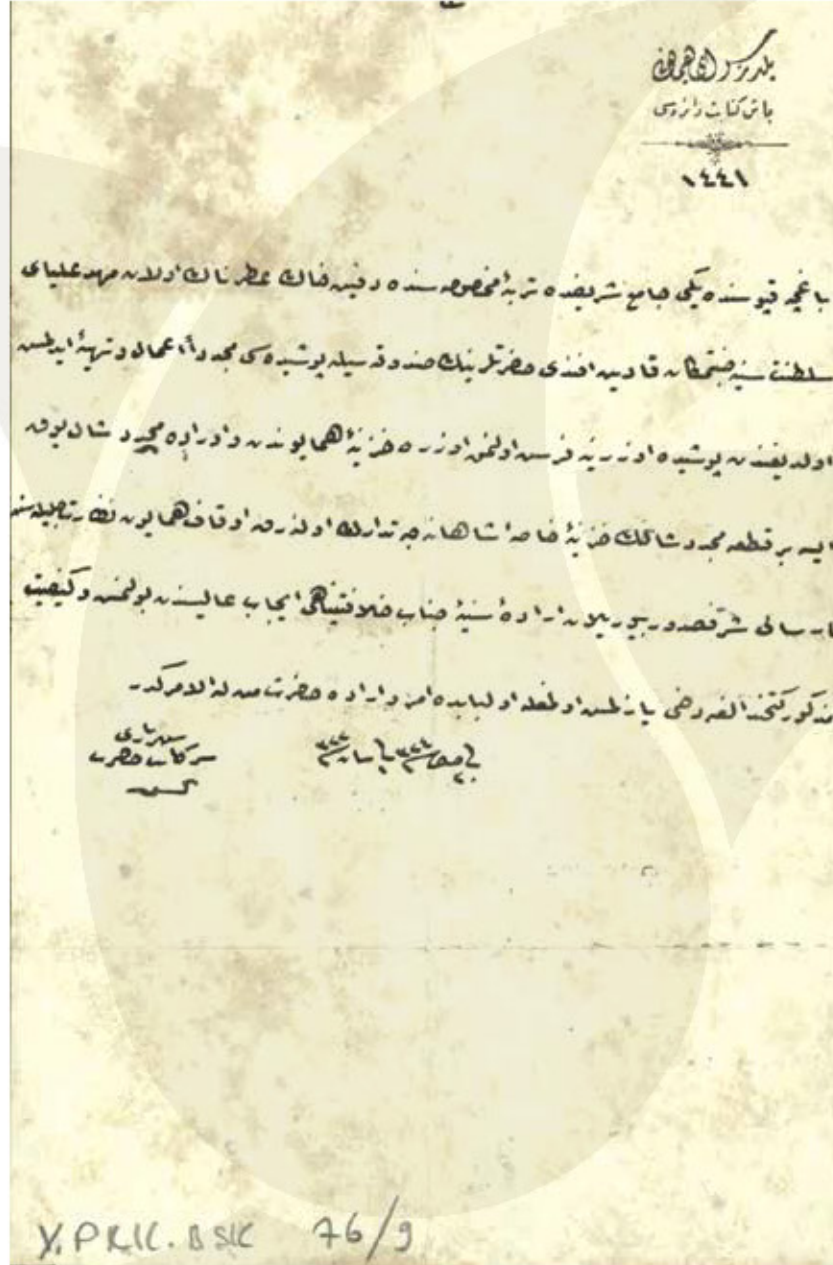 يلديز سراى همايونى
باش كتابت دائره‌سى
١٤٤١
باغچه قپوسنده يكى جامع شريفده تربۀ مخصوصه‌سنده دفين خاك عطرناك اولان مهد علياى
سلطنت سنيه جنتمكان قادين افندى حضرتلرينك صندوقه‌سيله پوشيده‌سى مجدداً اعمال و تهيه ايدلمش
اولديغندن پوشيده اوزرينه فرش اولنمق اوزره خزينۀ همايوندن و اوراده مجدد شال يوق
ايسه بر قطعه مجدد شالك خزينۀ خاصۀ شاهانه‌جه تدارك اولنه‌رق اوقاف همايون نظارت جليله‌سنه
ارسالى شرفصدور بيوريلان ارادۀ سنيۀ جناب خلافتپناهى ايجاب عاليسندن بولنمش و كيفيت
مذكور يازلمش اولمغله اولبابده امر و اراده حضرت من له الامركدر
فى ٣٢٤ ٣٢٢
سر كاتب حضرت شهريارى
Y.PRK.BŞK 76/9